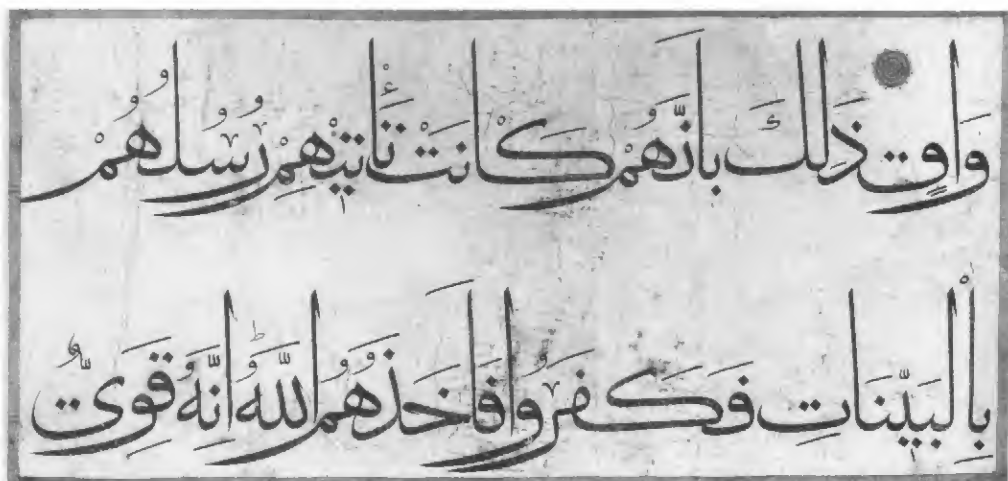 وَاقٍ ذَلِكَ بِاَنَّهُمْ كَانَتْ تَأْتِيهِمْ رُسُلُهُمْ
بِالْبَيِّنَاتِ فَكَفَرُوا فَاَخَذَهُمُ اللّٰهُ اِنَّهُ قَوِىٌّ